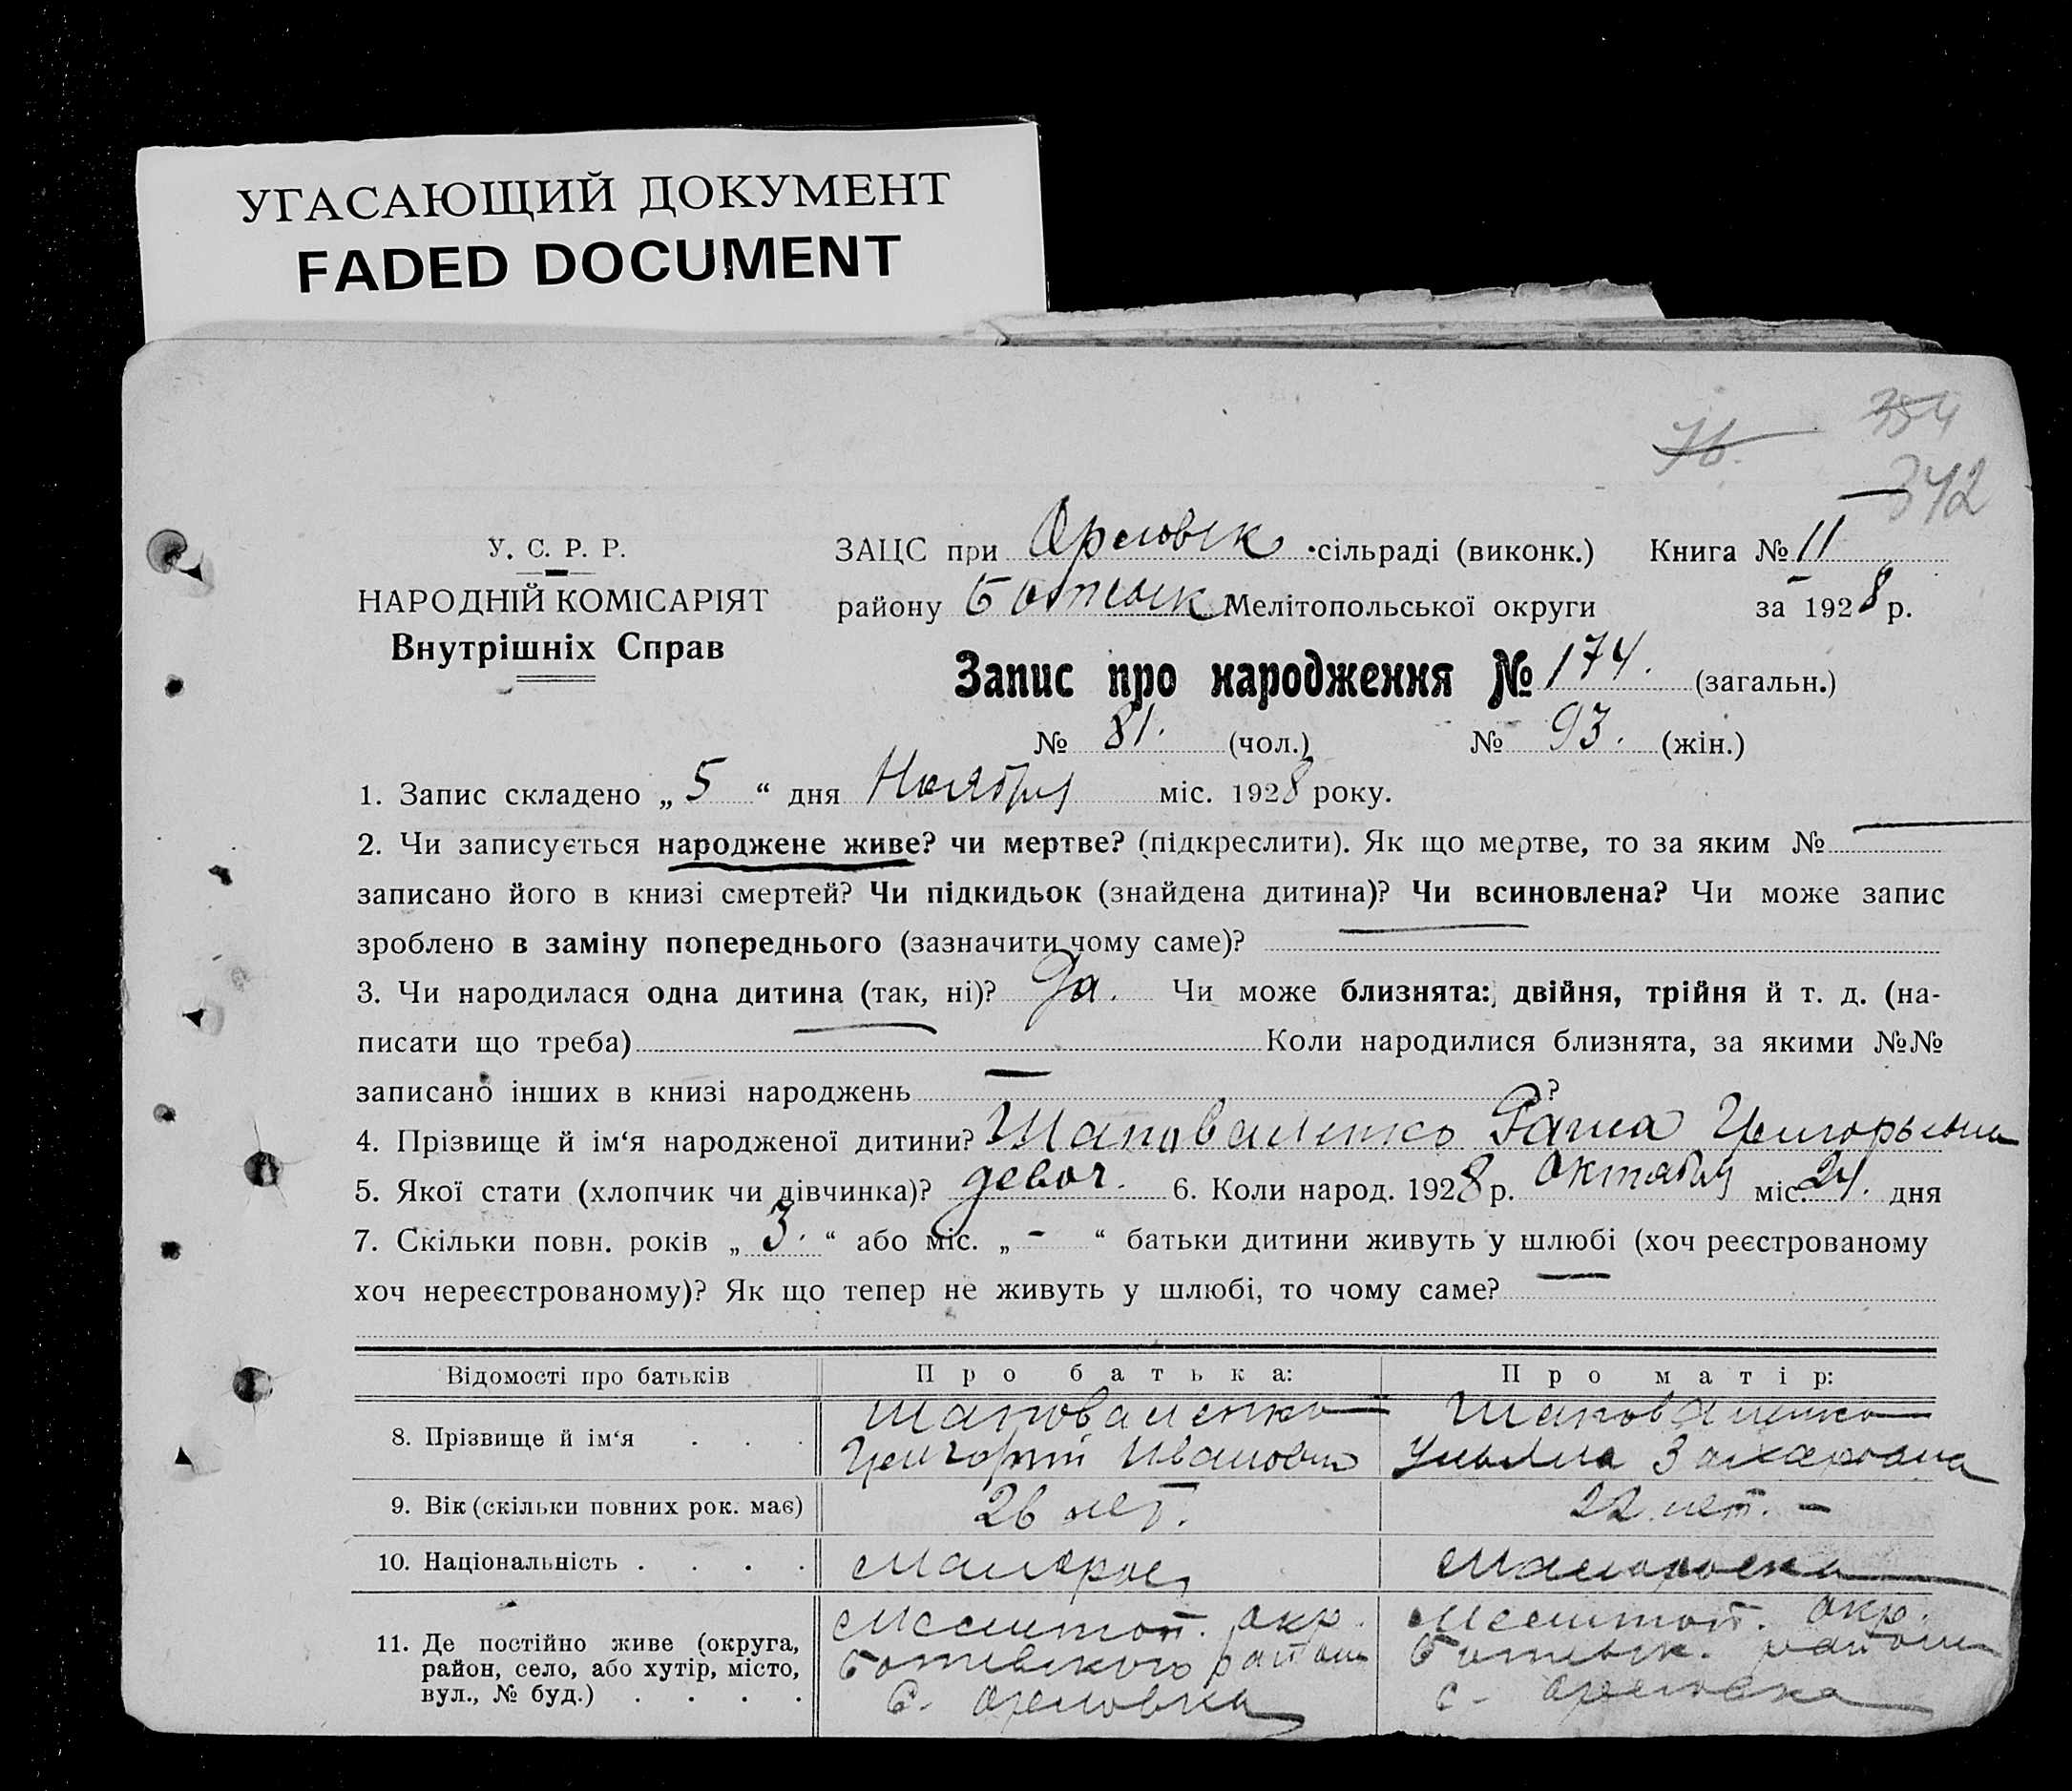 УГАСАЮЩИЙ ДОКУМЕНТ
FADED DOCUMENT
76.
354
342
У. С. Р. Р.
НАРОДНІЙ КОМІСАРІЯТ
Внутрішніх Справ
ЗАЦС при Орловск сільраді (виконк.) Книга № 11
району Ботьевск Мелітопольської округи за 1928 р.
Запис про народження № 174. (загальн.)
№ 81. (чол.) № 93. (жін.)
1. Запис складено „ 5 “ дня Ноября міс. 1928 року.
2. Чи записується народжене живе? чи мертве? (підкреслити). Як що мертве, то за яким №
записано його в книзі смертей? Чи підкидьок (знайдена дитина)? Чи всиновлена? Чи може запис
зроблено в заміну попереднього (зазначити чому саме)?
3. Чи народилася одна дитина (так, ні)? Да. Чи може близнята: двійня, трійня й т. д. (на-
писати що треба) Коли народилися близнята, за якими №№
записано інших в книзі народжень ?
4. Прізвище й ім‘я народженої дитини? Шаповаленко Григорьевна
5. Якої стати (хлопчик чи дівчинка)? девоч. 6. Коли народ. 1928 р. Октября міс. 24. дня
7. Скільки повн. років „ 3. “ або міс. „ - “ батьки дитини живуть у шлюбі (хоч реєстрованому
хоч нереєстрованому)? Як що тепер не живуть у шлюбі, то чому саме?
Відомості про батьків Про батька: Про матір:
8. Прізвище й ім‘я . . . Шаповаленко Шаповаленко
Григорий Иванович Ульяна Захаровна
9. Вік (скільки повних рок. має) 26 лет. 22 лет. –
10. Національність . . . . Малорос Малороска
11. Де постійно живе (округа, Мелитоп. окр. Мелитоп. окр.
район, село, або хутір, місто, Ботьевского район Ботьевск. район
вул., № буд.) . . . . С. Орловка с. Орловка